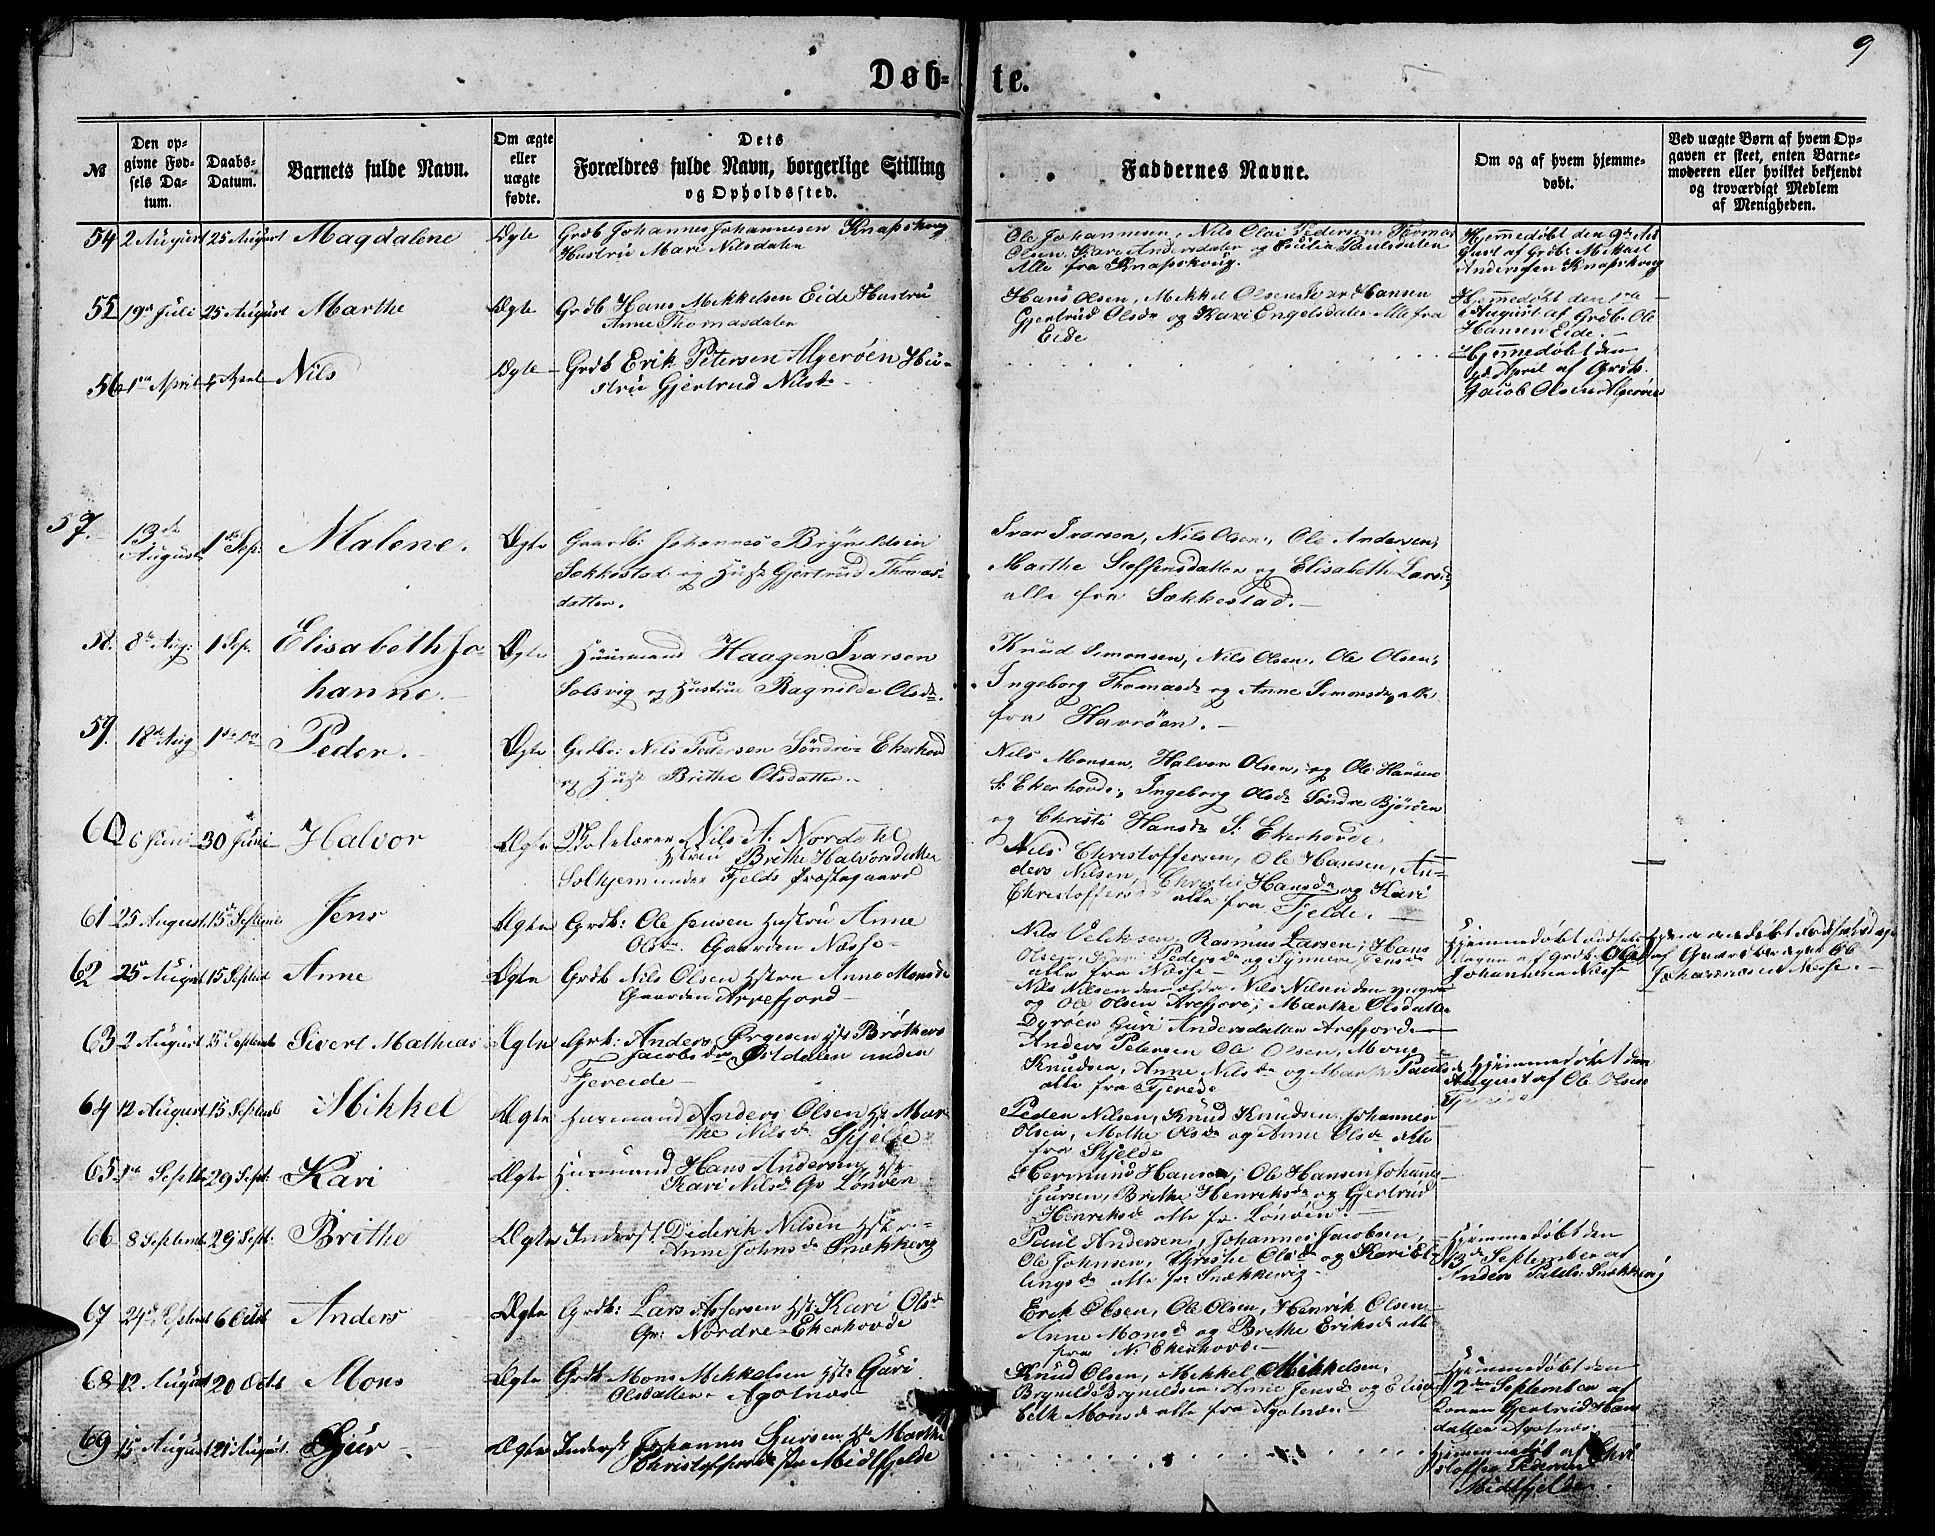 9
Døb- te.
№
Den opgivne Fødsels Datum.
Daabs-Datum.
Barnets fulde Navn.
Om ægte eller uægte fødte.
Dets Forældres fulde Navn, borgerlige Stilling og Opholdssted.
Faddernes Navne.
Om og af hvem hjemmedøbt.
Ved uægte Børn af hvem Opgaven er skeet, enten Barnemoderen eller hvilket bekjendt og troværdigt Medlem af Menigheden.
54 2 August 25 August Magdalene Ægte Grdb Johannes Johannesen Knapskoug
Hustru Mari Nilsdater
Ole Johannesen, Nils Olai Pedersen, Thomas
Olsen, Kari Andersdater og Cecilia Paulsdaten
Alle fra Knapskoug.
Hjemmedøbt den 9de Au
gust af Grdb. Mikkel
Andersen Knapskoug
55 19de Juli 25 August Marthe Ægte Grdb Hans Mikkelsen Eide Hustru
Anne Thomasdaler
Hans Olsen, Mikkel Olsen Iver Hansen
Gjertrud Olsdr og Kari Engelsdater Alle fra
Eide
Hjemmedøbt den 1ste
August af Grdb. Ole
Hansen Eide.
56 1ste April April Nils Ægte Grdb Erik Petersen Algerøen Hu-
stru Gjertrud Nilsdr
Hjemmedøbt den
April af Grdb.
Jacob Olsen Algerøen
57. 13de August 1ste Sep: Malene. Ægte Gaardb: Johannes Brynildsen
Sekkestad og Hust Gjertrud Thomas-
datter.
Ivar Ivarsen, Nils Olsen, Ole Andersen,
Marthe Steffensdatter og Elisabeth Larsd.
alle fra Sekkestad.
58. 8de Aug: 1 Sep. Elisabeth Jo-
hanne. Ægte Huusmand Haagen Ivarsen
Solsvig og Hustru Ragnilde Olsdr.
Knud Simonsen, Nils Olsen, Ole Olsen,
Ingeborg Thomasdr og Anne Simonsdr alle
fra Havrøen.
59. 18de Aug Peder. Ægte Grdbr: Nils Pedersen Søndre Ekerhovd
og Hust Brithe Olsdatter.
Nils Monsen, Halvor Olsen, og Ole Hansen
S: Ekerhovde, Ingeborg Olsdr Søndre Bjorøen
og Christi Hansdr S: Ekerhovde
60 6 Juni 30 Juni Halvor Ægte Nils A. Nordahl
Hstru Brithe Halvorsdatter
Solhjem under Fjelds Præstegaard
Nils Christoffersen, Ole Hansen, An-
ders Nilsen, Christie Hansdr og Kari
Christoffersdr alle fra Fjelde.
61 25 August 15de Septemb Jens Ægte Grdb: Ole Jensen Hustru Anne
Olsdr Gaarden Næsse
Nils Rasmus Larsen, Hans
Olsen, Kari Pedersdr og Synneve Jensdr
alle fra Næsse
Hjemmedøbt
dagen af Grdb. Ole
Johannesen Næsse
Hjemmedøbt Fødselsdage
af Gaardbruger Ole
Johannesen Nesse.
62 25 August 15 Septemb Anne Ægte Grdb Nils Olsen Hstru Anne Monsdr
Gaarden Arrefjord
Nils Nilsen den ældre Nils Nilsen den yngre
og Ole Olsen Arefjord, Marthe Olsdatter
Dyrøen Guri Andersdatter Arefjorde
63 2 August 15 Septemb Sivert Mathias Ægte Grb: Anders Ørgesen Hst Brithe
Jacobsdr Ørtdalen under
Fjereide
Anders Petersen Ole Olsen, Mons
Knudsen, Anne Nilsdr og Marthe Paulsdr
alle fra Fjerede
Hjemmedøbt den
August af Ole Olsen
Fjereide
64 12 August 15 Septemb Mikkel Ægte Husmand Anders Olsen Hst Mar
the Nilsdr Skjelde
Peder Nilsen, Knud Knudsen, Johannes
Olsen, Methe Olsdr og Anne Olsdr alle
fra Skjelde
65 1ste Septb 29 Sept: Kari Ægte Husmand Hans Andersen Hst
Kari Nilsdr Gr Lonøen
Hermund Hansen, Ole Hansen, Johannes
Gursen, Brithe Henriksdr og Gjertrud
Henriksdr alle fr: Lonøen.
66 8 Septemb 29 Sept: Brithe Ægte Inderst Diderik Nilsen Hst
Anne Johnsdr Snækkevig
Paul Andersen, Johannes Jacobsen,
Ole Johnsen, Christie Olsdr og Kari El-
lingsdr alle fr Snækkevig
Hjemmedøbt den
13de September af
Anders Snækkevig
67 24de Septemb 6 Octob Anders Ægte Grdb: Lars Assersen Hst: Kari Olsdr
Gr: Nordre Ekerhovde
Erik Olsen, Ole Olsen, Henrik Olsen
Anne Monsdr og Brethe Eriksdr alle
fra N: Ekerhovde
68 12 August 20 Octob Mons Ægte Grdb Mons Mikkelsen Hst Guri
Olsdatter Agotnæs
Knud Olsen, Mikkel Mikkelsen,
Brynild Brynildsen, Anne Jensdr og Elisa
beth Monsdr alle fra Agotnæs
Hjemmedøbt den
2den September af
Konen Gjertrud Hans
datter Agotnæs
69 15 August 25 August. Gjur Ægte Inderst Johannes Gursen Hst Marthe
Christoffersdr fra Midtfjelde
Hjemmedøbt af Chri
stoffer Pedersen
Midtfjelde.